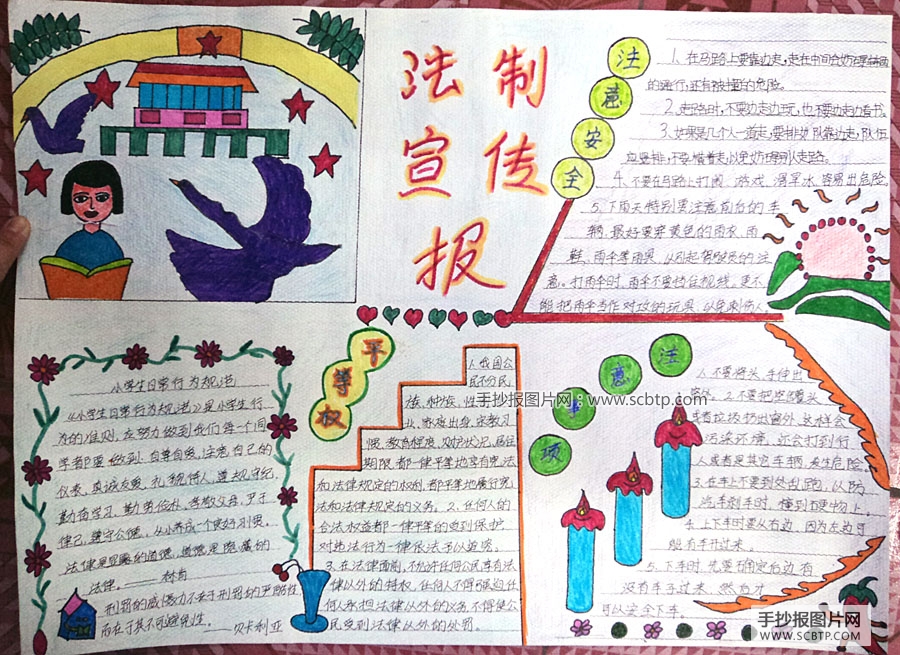 法制
宣传
报
注意安全
1.在马路上要靠边走,走在中间会妨碍车辆
的通行,还有被撞的危险。
2.走路时,不要边走边玩,也不要边走边看书。
3.如果是几个人一首走,要排边队靠边走,队伍
应竖排,不要横着走,以免妨碍别人走路。
4.不要在马路上打闹、游戏、滑旱冰,容易出危险。
5.下雨天特别要注意前后的车
辆,最好要穿黄色的雨衣、雨
鞋、雨伞等雨具,以引起驾驶员的注
意。打雨伞时,雨伞不要挡住视线。更不
能把雨伞当作对攻的玩具,以免刺伤人
小学生日常行为规范
《小学生日常行为规范》是小学生行
为的准则,应努力做到我们每一个同
学都要做到:自尊自爱,注意自己的
仪表,真诚友爱,礼貌待人,遵规守纪,
勤奋学习,勤劳俭朴,孝敬父母,严于
律己,遵守公德,从小养成一个良好习惯。
法律是显露的道德,道德是隐藏的
法律。——林肯
刑罚的威慑力不在于刑罚的严酷性
而在于其不可避免性。——贝卡利亚
平等权
1.我国公
民不分民
族、种族、性
业、家庭出身、宗教习
惯、教育程度、财产状况、居住
期限,都一律平等地享有宪法
和法律规定的权利,都平等地履行宪
法和法律规定的义务。2、任何人的
合法权益都一律平等的受到保护
对违法行为一律依法予以追究。
3.在法律面前,不允许任何公民享有法
律以外的特权,任何人不得强迫任
何人承担法律以外的义务,不得使公
民受到法律以外的处罚。
手抄报图片网:www.scbtp.com
注意事项
1.不要将头、手伸出
窗外。
2.不要把空罐头
或者垃圾扔出窗外,这样会
污染环境,还会打到行
人或者是其它车辆,发生危险。
3.在车上不要到处乱跑,以防
汽车刹车时,撞到右硬物上。
4.上下车时要从右边,因为左边可
能有车开过来。
5.下车时,先要确定右边有
没有车子过来,然后才
可以安全下车。
手抄报图片网
WWW.SCBTP.COM